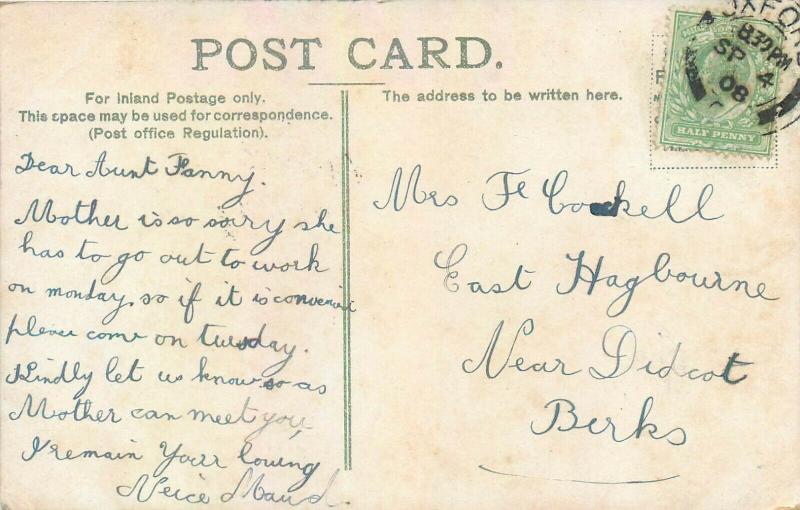 POST CARD.
For Inland Postage only.
This space may be used for correspondence.
(Post office Regulation).
The address to be written here.
OXFORD
830PM
SP 4
08
HALF PENNY
Dear Aunt Fanny.
Mother is so sorry she
has to go out to work
on monday, so if it is convenient
please come on tuesday.
Kindly let us know so as
Mother can meet you,
I remain Your loving
Neice Maud.
Mrs F Cockell
East Hagbourne
Near Didcot
Berks